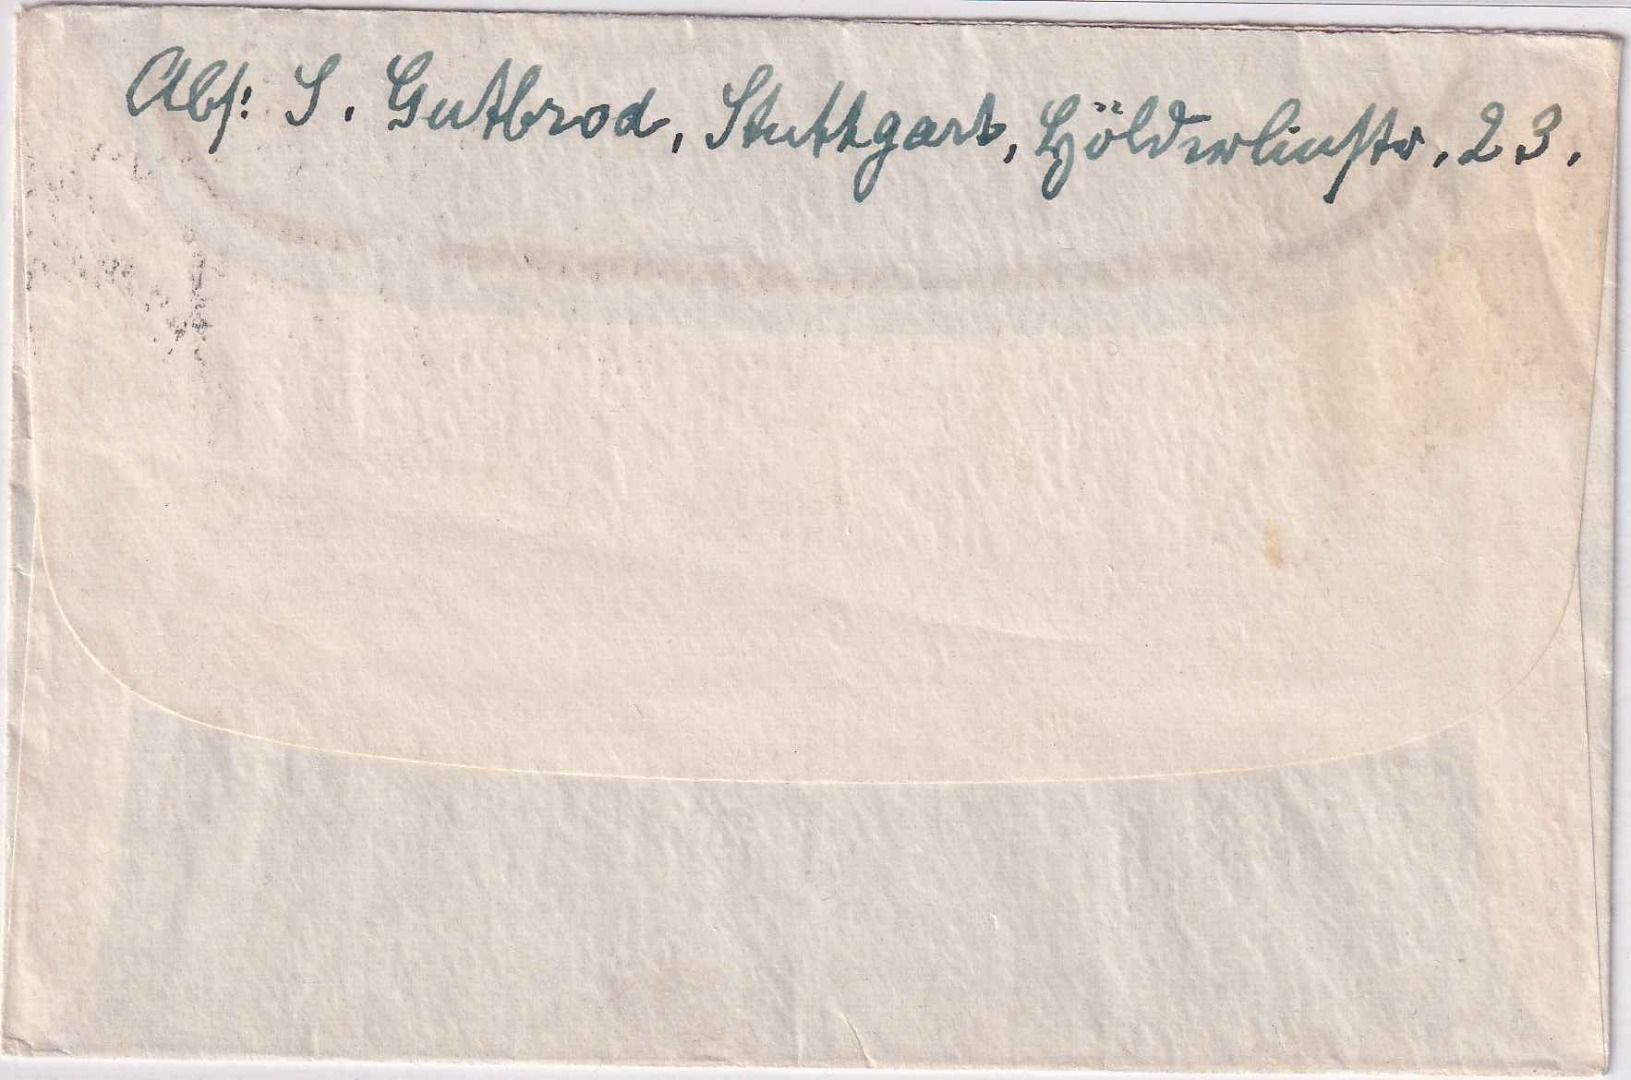 Abs: S. Gutbrod, Stuttgart, Hölderlinstr. 23.